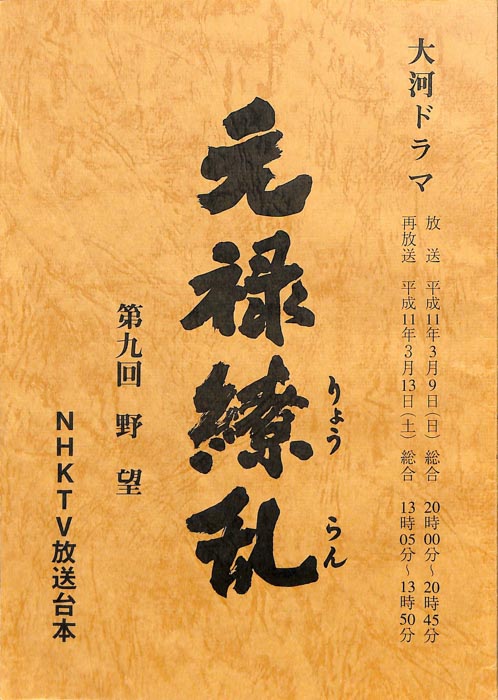 大河ドラマ
放送 平成11年3月9日(日) 総合 20時00分～20時45分
再放送 平成11年3月13日(土) 総合 13時05分～13時50分
元禄繚乱
りょう らん
第九回 野望
NHKTV放送台本